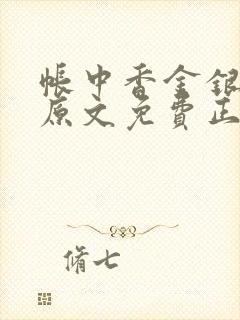 帐中香金银
原文免費正
脩七